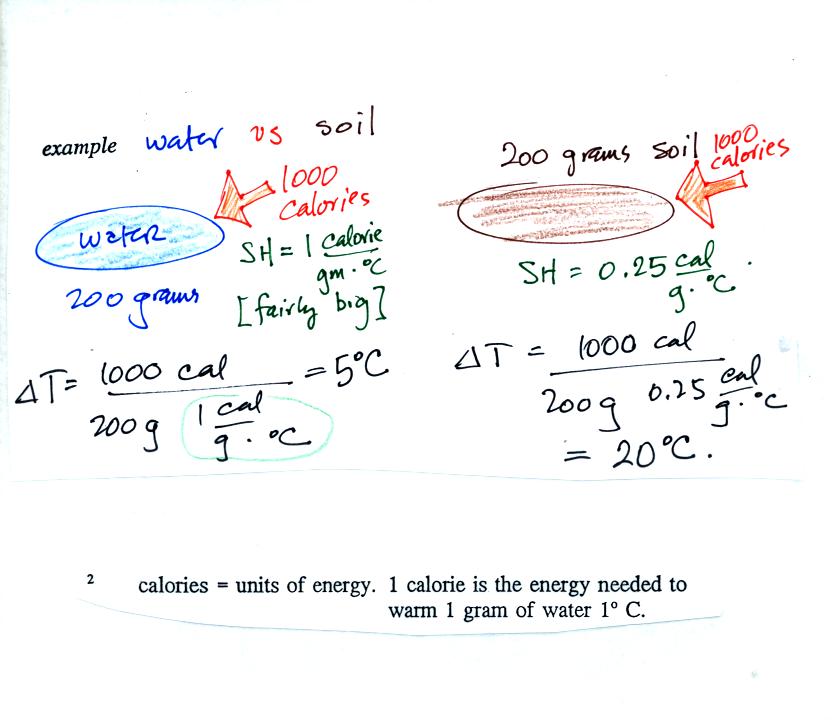 example water vs soil
1000
calories
water
200 grams
SH = 1 calorie
gm · °C
[fairly big]
ΔT = 1000 cal = 5°C
200 g 1 cal
g · °C
200 grams soil
1000
calories
SH = 0.25 cal
g · °C
ΔT = 1000 cal
200 g 0.25 cal
g · °C
= 20°C.
2 calories = units of energy. 1 calorie is the energy needed to
warm 1 gram of water 1° C.